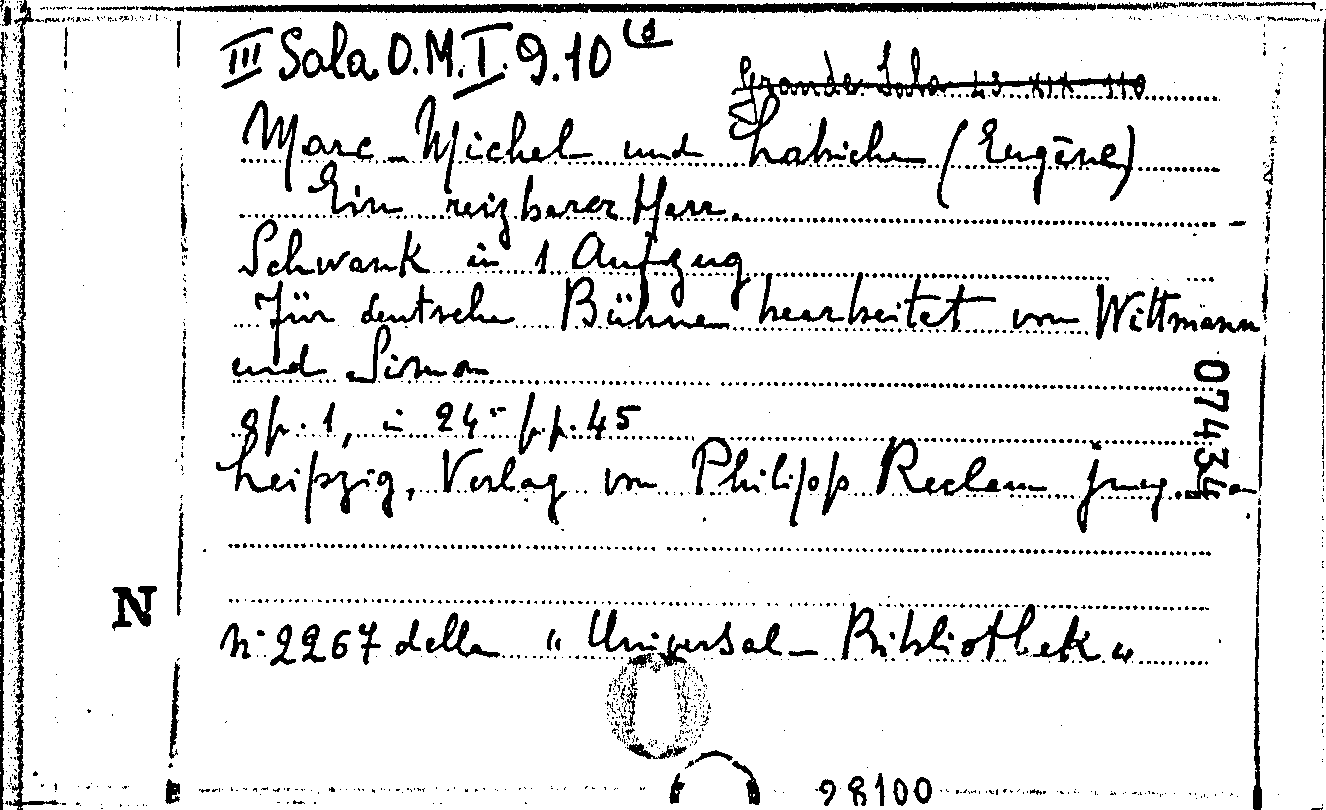 III Sala O.M.I.9.10
Grande Sala 23 XIX 110
Marc-Michel und Labiche (Eugène)
Ein reizbarer Herr.
Schwank in 1 Aufzug
Für deutsche Bühne bearbeitet von Wittmann
und Simon
gr. 1, in 24° pp. 45
Leipzig, Verlag von Philipp Reclam jung.
07434
N
n° 2267 della "Universal-Bibliothek"
28100